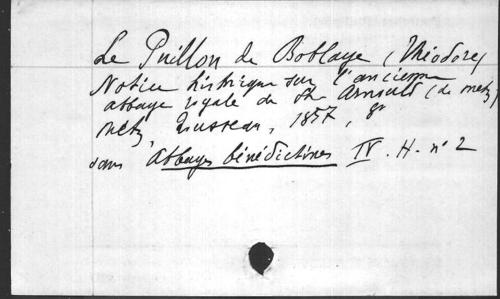 Le Puillon de Boblaye (Théodore)
Notice historique sur l'ancienne
abbaye royale de St Arnould (de Metz)
Metz, Rousseau, 1857, gr
dans Abbayes bénédictines IV. H. n° 2